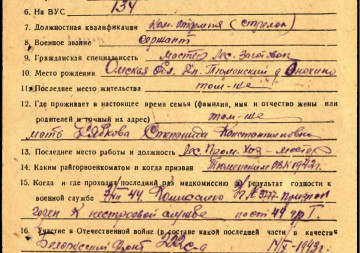 6. На ВУС 134
7. Должностная квалификация Ком. отделения (стрелок)
8. Военное звание Сержант
9. Гражданская специальность Мастер Лес. Заготовок
10. Место рождения Омская обл. Тюменский д. Онохино
11. Последнее место жительства там-же
12. Где проживает в настоящее время семья (фамилия, имя и отчество жены или
родителей и точный их адрес) там-же
мать Константиновна
13. Последнее место работы и должность Лес Пром. Хоз - мастер
14. Каким райгорвоенкоматом и когда призван Тюменским 1942 г.
15. Когда и где проходил последний раз медкомиссию и результат годности к
военной службе 44 Комиссию признан
годен к нестроевой службе по ст 49 гр I.
16. Участие в Отечественной войне (в составе какой последней части в качестве
Белорусский Фронт 222 с-д 1943 г.